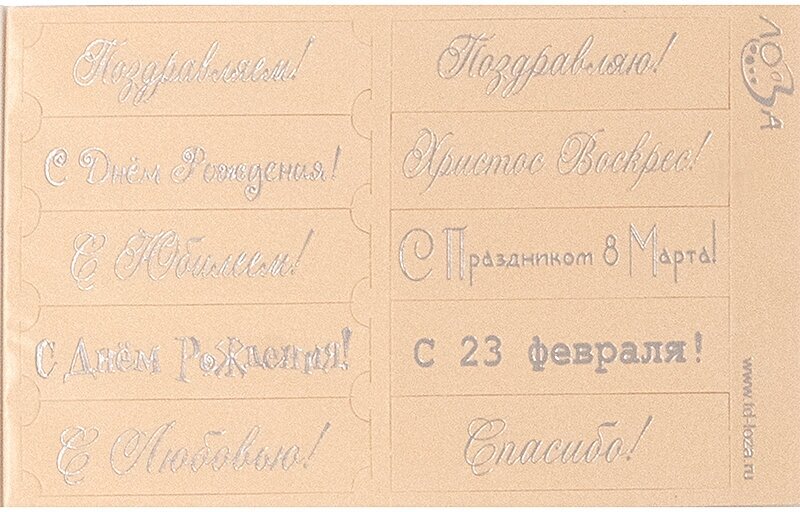 Поздравляем!
С Днём Рождения!
С Юбилеем!
С Днём Рождения!
С Любовью!
Поздравляю!
Христос Воскрес!
С Праздником 8 Марта!
С 23 февраля!
Спасибо!
ЛОЗА
www.td-loza.ru